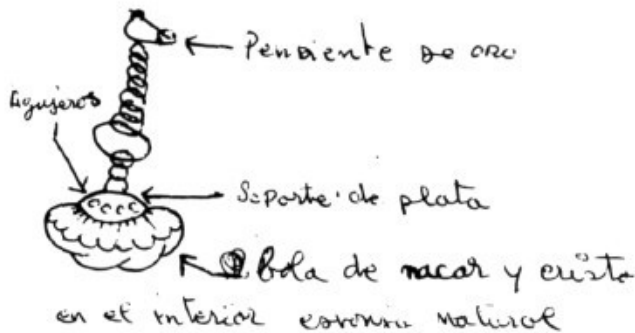 Pendiente de oro
Agujeros
Soporte de plata
bola de nacar y crista
en el interior esponja natural